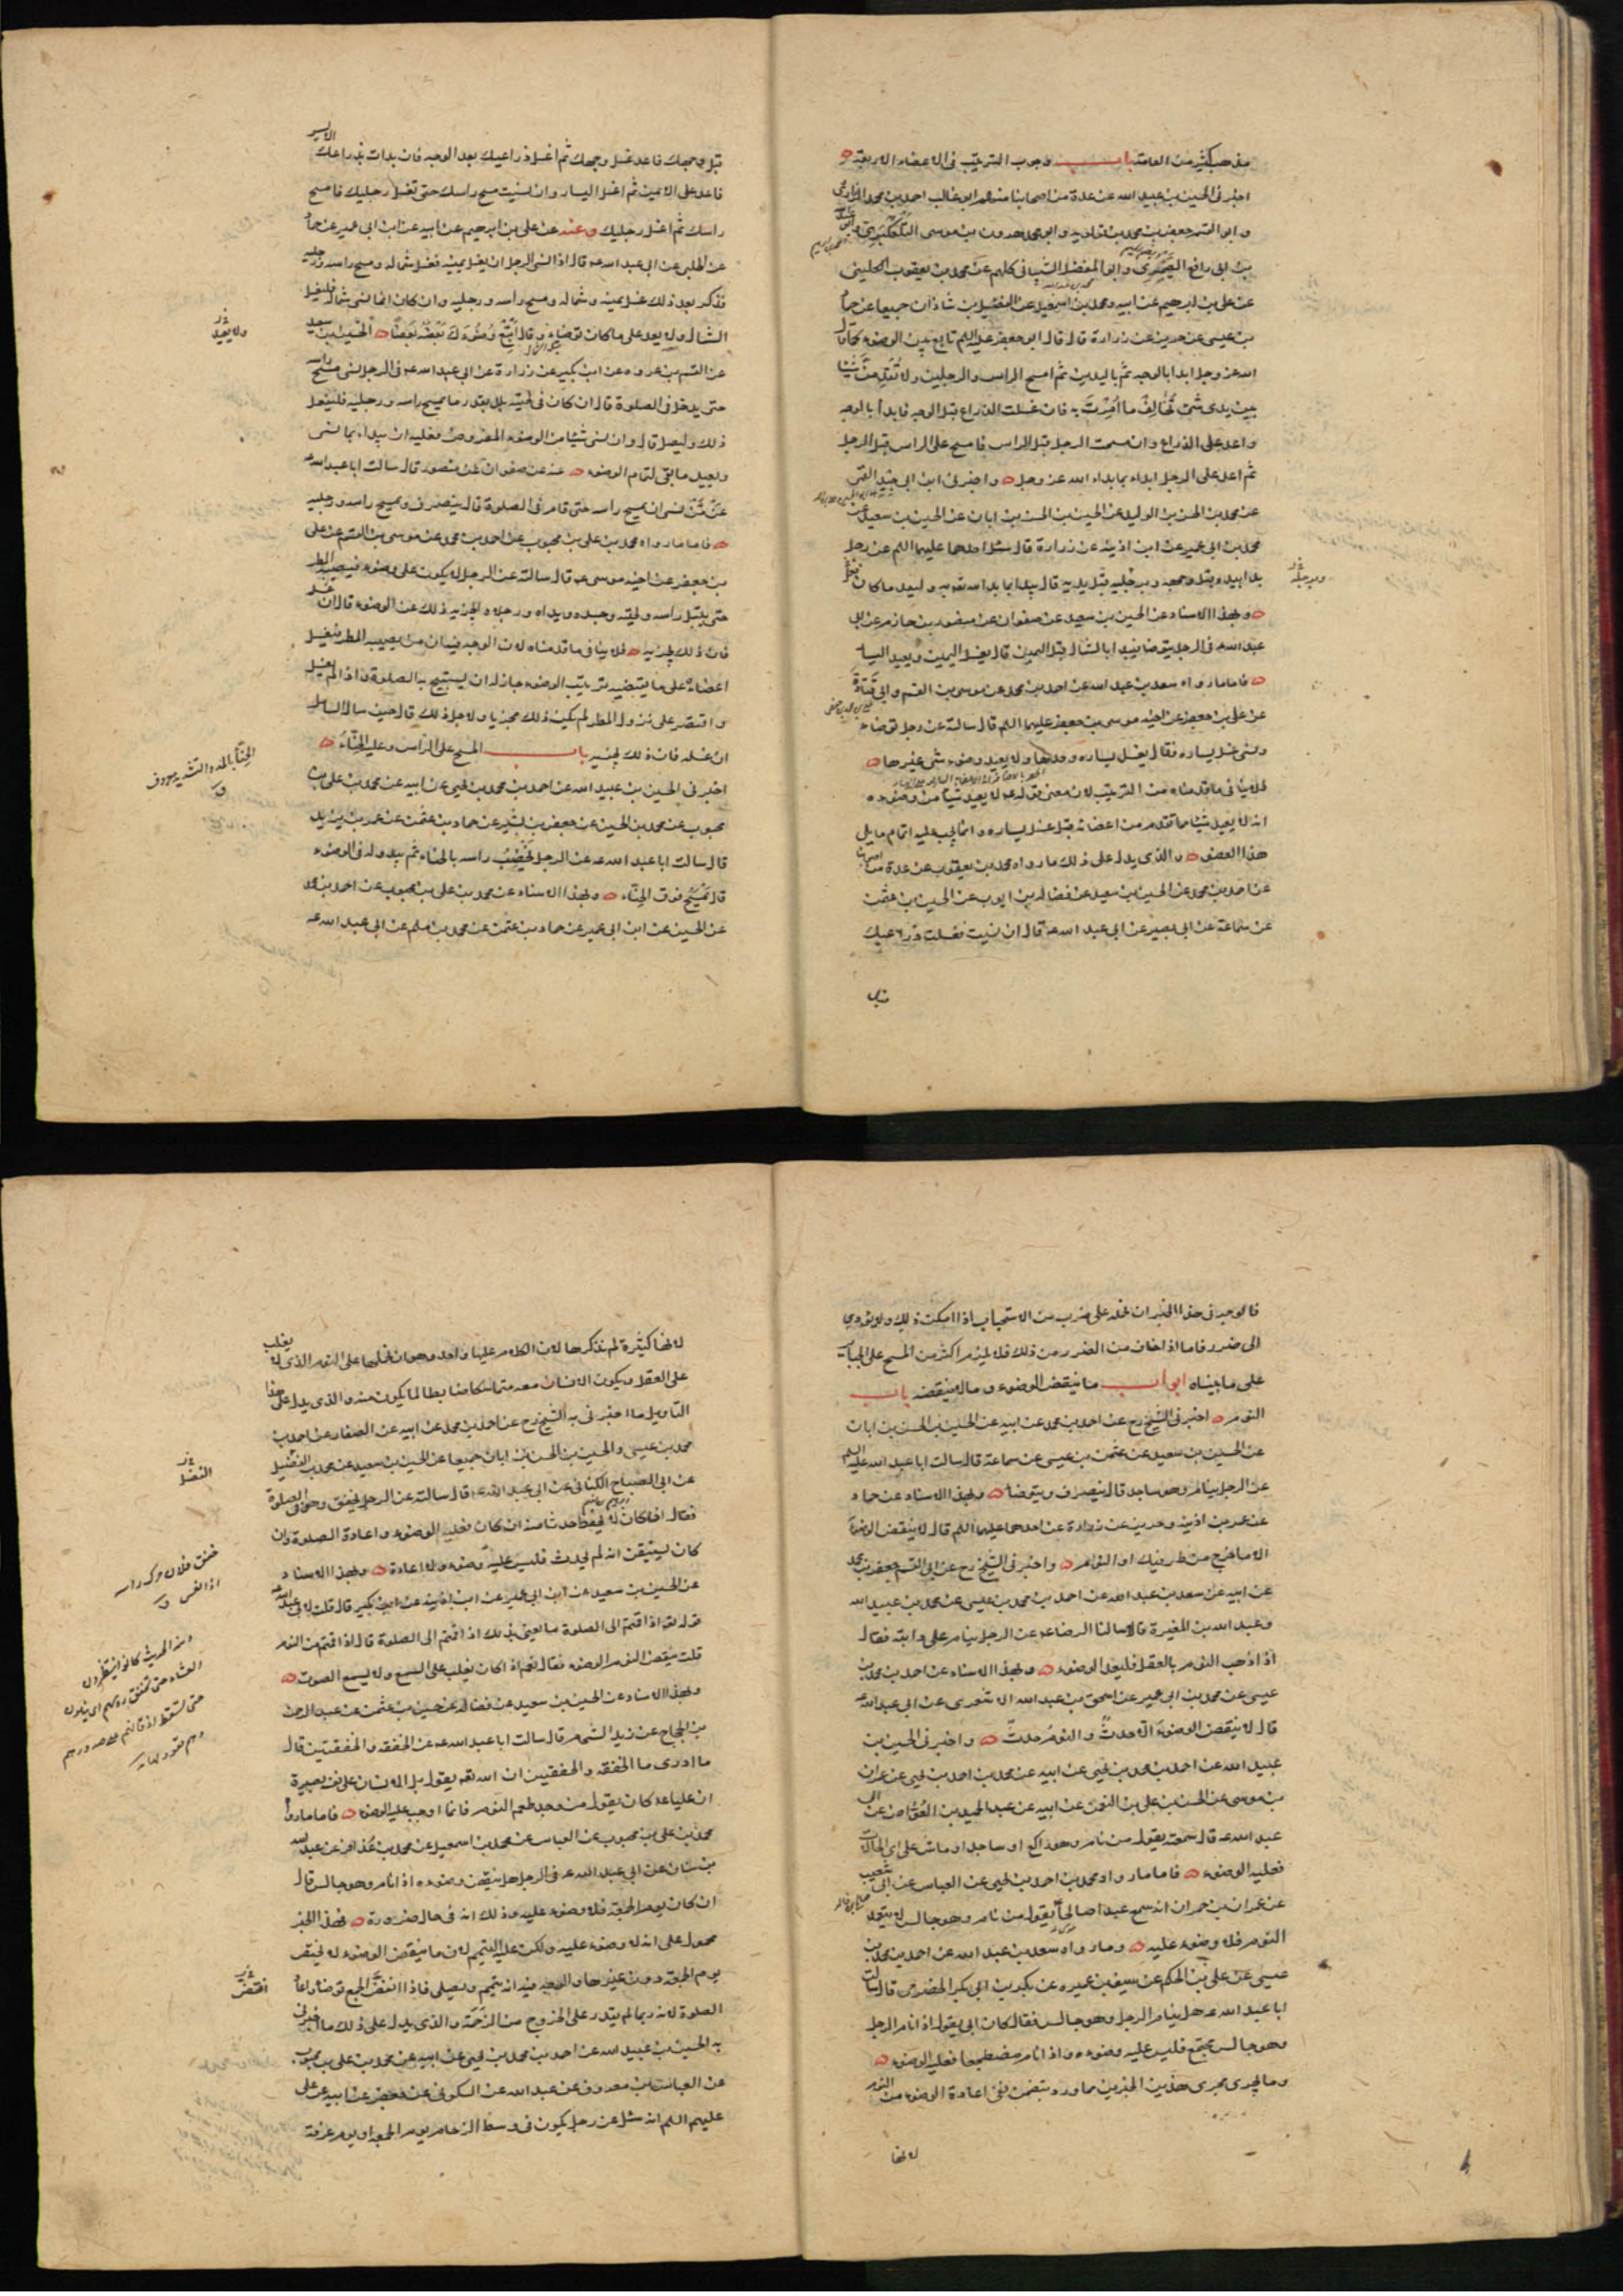 مذهب كثير من العامة باب وجوب الترتيب في الاعضاء الاربعة
اخبرني الحسين بن عبيد الله عن عدة من اصحابنا منهم ابو غالب احمد بن محمد الزراري
وابو القسم جعفر بن محمد بن قولويه وابو محمد هرون بن موسى التلعكبري وابو عبد الله
بن ابي رافع الصيمري وابو المفضل الشيباني كلهم عن محمد بن يعقوب الكليني
عن علي بن ابرهيم عن ابيه ومحمد بن اسمعيل عن الفضل بن شاذان جميعا عن حماد
بن عيسى عن حريز عن زرارة قال قال ابو جعفر عليه السلم تابع بين الوضوء كما قال
الله عز وجل ابدا بالوجه ثم باليدين ثم امسح الراس والرجلين ولا تقدمن شيئا
بين يدي شيء تخالف ما امرت به فان غسلت الذراع قبل الوجه فابدأ بالوجه
واعد على الذراع وان مسحت الرجل قبل الراس فامسح على الراس قبل الرجل
ثم اعد على الرجل ابداء بما بداء الله عز وجل واخبرني ابن ابي جيد القمي
عن محمد بن الحسن بن الوليد عن الحسين بن الحسن بن ابان عن الحسين بن سعيد عن
محمد بن ابي عمير عن ابن اذينه عن زرارة قال سئل احدهما عليهما السلم عن رجل
بدا بيده قبل وجهه وبرجليه قبل يديه قال يبدا بما بدا الله تعالى به وليعد ما كان فعل
وبهذا الاسناد عن الحسين بن سعيد عن صفوان عن منصور بن حازم عن ابي
عبد الله ع في الرجل يتوضا فيبدا بالشمال قبل اليمين قال يغسل اليمين ويعيد اليسار
فاما ما رواه سعد بن عبد الله عن احمد بن محمد عن موسى بن القسم وابي قتادة
عن علي بن جعفر عن اخيه موسى بن جعفر عليهما السلم قال سالته عن رجل توضاء
ونسي غسل يساره فقال يغسل يساره وحدها ولا يعيد وضوء شيء غيرها
فلا ينافي ما قدمناه من الترتيب لان معنى قوله ع لا يعيد شيئا من وضوءه
انه لا يعيد شيئا مما تقدم من اعضائه قبل غسل يساره وانما يجب عليه اتمام ما يلي
هذا العضو والذي يدل على ذلك ما رواه محمد بن يعقوب عن عدة من اصحابنا
عن احمد بن محمد عن الحسين بن سعيد عن فضالة بن ايوب عن الحسين بن عثمن
عن سماعة عن ابي بصير عن ابي عبد الله ع قال ان نسيت فغسلت ذراعيك
قبل
قبل وجهك فاعد غسل وجهك ثم اغسل ذراعيك بعد الوجه فان بدات بذراعك الايسر
فاعد على الايمن ثم اغسل اليسار وان نسيت مسح راسك حتى تغسل رجليك فامسح
راسك ثم اغسل رجليك وعنه عن علي بن ابرهيم عن ابيه عن ابن ابي عمير عن حماد
عن الحلبي عن ابي عبد الله ع قال اذا نسي الرجل ان يغسل يمينه فغسل شماله ومسح راسه ورجليه
فذكر بعد ذلك غسل يمينه وشماله ومسح راسه ورجليه وان كان انما نسي شماله فليغسل
الشمال ولا يعد على ما كان توضاء وقال اتبع وضوءك بعضه بعضا الحسين بن سعيد
ولا يعيد
عن القسم بن عروه عن ابن بكير عن زرارة عن ابي عبد الله ع في الرجل نسي مسح راسه
حتى يدخل في الصلوة قال ان كان في لحيته بلل بقدر ما يمسح راسه ورجليه فليفعل
ذلك وليصل قال وان نسي شيئا من الوضوء المفروض فعليه ان يبداء بما نسي
ويعيد ما بقي لتمام الوضوء عنه عن صفوان عن منصور قال سالت ابا عبد الله ع
عمن نسي ان يمسح راسه حتى قام في الصلوة قال ينصرف ويمسح راسه ورجليه
فاما ما رواه محمد بن علي بن محبوب عن احمد بن محمد عن موسى بن القسم عن علي
بن جعفر عن اخيه موسى ع قال سالته عن الرجل لا يكون على وضوء فيصيبه المطر
حتى يبتل راسه ولحيته وجسده ويداه ورجلاه ايجزيه ذلك عن الوضوء قال ان غسله
فان ذلك يجزيه فلا ينافي ما قدمناه لان الوجه فيه ان من يصيبه المطر فيغسل
اعضاءه على ما يقتضيه ترتيب الوضوء جاز له ان يستبيح به الصلوة واذا لم يغسل
واقتصر على نزول المطر لم يكن ذلك مجزيا ولاجل ذلك قال حين ساله السائل
ان غسله فان ذلك يجزيه باب المسح على الراس وعليه الحناء
الحناء بالمد والتشديد معروف
اخبرني الحسين بن عبيد الله عن احمد بن محمد بن يحيى عن ابيه عن محمد بن علي بن
محبوب عن محمد بن الحسين عن جعفر بن بشير عن حماد بن عثمن عن عمر بن يزيد
قال سالت ابا عبد الله ع عن الرجل يخضب راسه بالحناء ثم يبدو له في الوضوء
قال يمسح فوق الحناء وبهذا الاسناد عن محمد بن علي بن محبوب عن احمد بن محمد
عن الحسين عن ابن ابي عمير عن حماد بن عثمن عن محمد بن مسلم عن ابي عبد الله ع
فالوجه في هذا الخبر ان نحمله على ضرب من الاستحباب اذا امكن ذلك ولا يؤدي
الى ضرر فاما اذا خاف من الضرر من ذلك فلا يلزم اكثر من المسح على الجبائر
على ما بيناه ابواب ما ينقض الوضوء وما لا ينقضه باب
النوم اخبرني الشيخ رح عن احمد بن محمد عن ابيه عن الحسين بن الحسن بن ابان
عن الحسين بن سعيد عن عثمن بن عيسى عن سماعة قال سالت ابا عبد الله عليه السلم
عن الرجل ينام وهو ساجد قال ينصرف ويتوضا وبهذا الاسناد عن حماد
عن عمر بن اذينه وحريز عن زرارة عن احدهما عليهما السلم قال لا ينقض الوضوء
الا ما خرج من طرفيك او النوم واخبرني الشيخ رح عن ابي القسم جعفر بن محمد
عن ابيه عن سعد بن عبد الله عن احمد بن محمد بن عيسى عن محمد بن عبيد الله
وعبد الله بن المغيرة قالا سالنا الرضا ع عن الرجل ينام على دابته فقال
اذا ذهب النوم بالعقل فليعد الوضوء وبهذا الاسناد عن احمد بن محمد بن
عيسى عن محمد بن ابي عمير عن اسحق بن عبد الله الاشعري عن ابي عبد الله ع
قال لا ينقض الوضوء الا حدث والنوم حدث واخبرني الحسين بن
عبيد الله عن احمد بن محمد بن يحيى عن ابيه عن محمد بن احمد بن يحيى عن عمران
بن موسى عن الحسن بن علي بن النعمن عن ابيه عن عبد الحميد بن العواض عن ابي
عبد الله ع قال سمعته يقول من نام وهو راكع او ساجد او ماش على اي الحالات
فعليه الوضوء فاما ما رواه محمد بن احمد بن يحيى عن العباس عن ابي شعيب
عن عمران بن حمران انه سمع عبدا صالحا يقول من نام وهو جالس لا يتعمد
النوم فلا وضوء عليه وما رواه سعد بن عبد الله عن احمد بن محمد بن
عيسى عن علي بن الحكم عن سيف بن عميره عن بكر بن ابي بكر الحضرمي قال سالت
ابا عبد الله ع هل ينام الرجل وهو جالس فقال كان ابي يقول اذا نام الرجل
وهو جالس مجتمع فليس عليه وضوء واذا نام مضطجعا فعليه الوضوء
وما يجري مجرى هذين الخبرين مما ورد يتضمن نفي اعادة الوضوء من النوم
لانها
لانها كثيرة لم نذكرها لان الكلام عليها واحد وهو ان نحملها على النوم الذي لا يغلب
على العقل ويكون الانسان معه متماسكا ضابطا لما يكون منه والذي يدل على هذا
التاويل ما اخبرني به الشيخ رح عن احمد بن محمد عن ابيه عن الصفار عن احمد بن
محمد بن عيسى والحسين بن الحسن بن ابان جميعا عن الحسين بن سعيد عن محمد بن الفضيل
الفضل
عن ابي الصباح الكناني عن ابي عبد الله ع قال سالته عن الرجل يخفق وهو في الصلوة
فقال اذا كان لا يحفظ حدثا منه ان كان فعليه الوضوء واعادة الصلوة وان
كان يستيقن انه لم يحدث فليس عليه وضوء ولا اعادة وبهذا الاسناد
خفق فلان حرك راسه
اذا نعس
عن الحسين بن سعيد عن ابن ابي عمير عن ابن اذينه عن ابن بكير قال قلت لابي عبد الله ع
قوله تعالى اذا قمتم الى الصلوة ما يعني بذلك اذا قمتم الى الصلوة قال اذا قمتم من النوم
قلت ينقض النوم الوضوء فقال نعم اذا كان يغلب على السمع ولا يسمع الصوت
ومنه الحديث كانوا ينتظرون
العشاء حتى تخفق رؤسهم اي ينامون
حتى تسقط اذقانهم على صدورهم
وهم قعود
وبهذا الاسناد عن الحسين بن سعيد عن فضالة عن حسين بن عثمن عن عبد الرحمن
بن الحجاج عن زيد الشحام قال سالت ابا عبد الله ع عن الخفقه والخفقتين قال
ما ادري ما الخفقه والخفقتين ان الله تعالى يقول بل الانسان على نفسه بصيرة
ان عليا ع كان يقول من وجد طعم النوم فانما اوجب عليه الوضوء فاما ما رواه
محمد بن علي بن محبوب عن العباس عن محمد بن اسمعيل عن محمد بن عذافر عن عبد الله
بن سنان عن ابي عبد الله ع في الرجل هل ينقض وضوءه اذا نام وهو جالس قال
ان كان يوم الجمعة فلا وضوء عليه وذلك انه في حال ضرورة فهذا الخبر
محمول على انه لا وضوء عليه ولكن عليه التيمم لان ما ينقض الوضوء لا يختص
يوم الجمعة دون غيرها والوجه فيه انه يتيمم ويصلي فاذا انفض الجمع توضا واعاد
الصلوة لانه ربما لم يقدر على الخروج من الزحمة والذي يدل على ذلك ما اخبرني
به الحسين بن عبيد الله عن احمد بن محمد بن يحيى عن ابيه عن محمد بن علي بن محبوب
عن العباس بن معروف عن عبد الله عن السكوني عن جعفر عن ابيه عن علي
عليهم السلم انه سئل عن رجل يكون في وسط الزحام يوم الجمعة او يوم عرفة